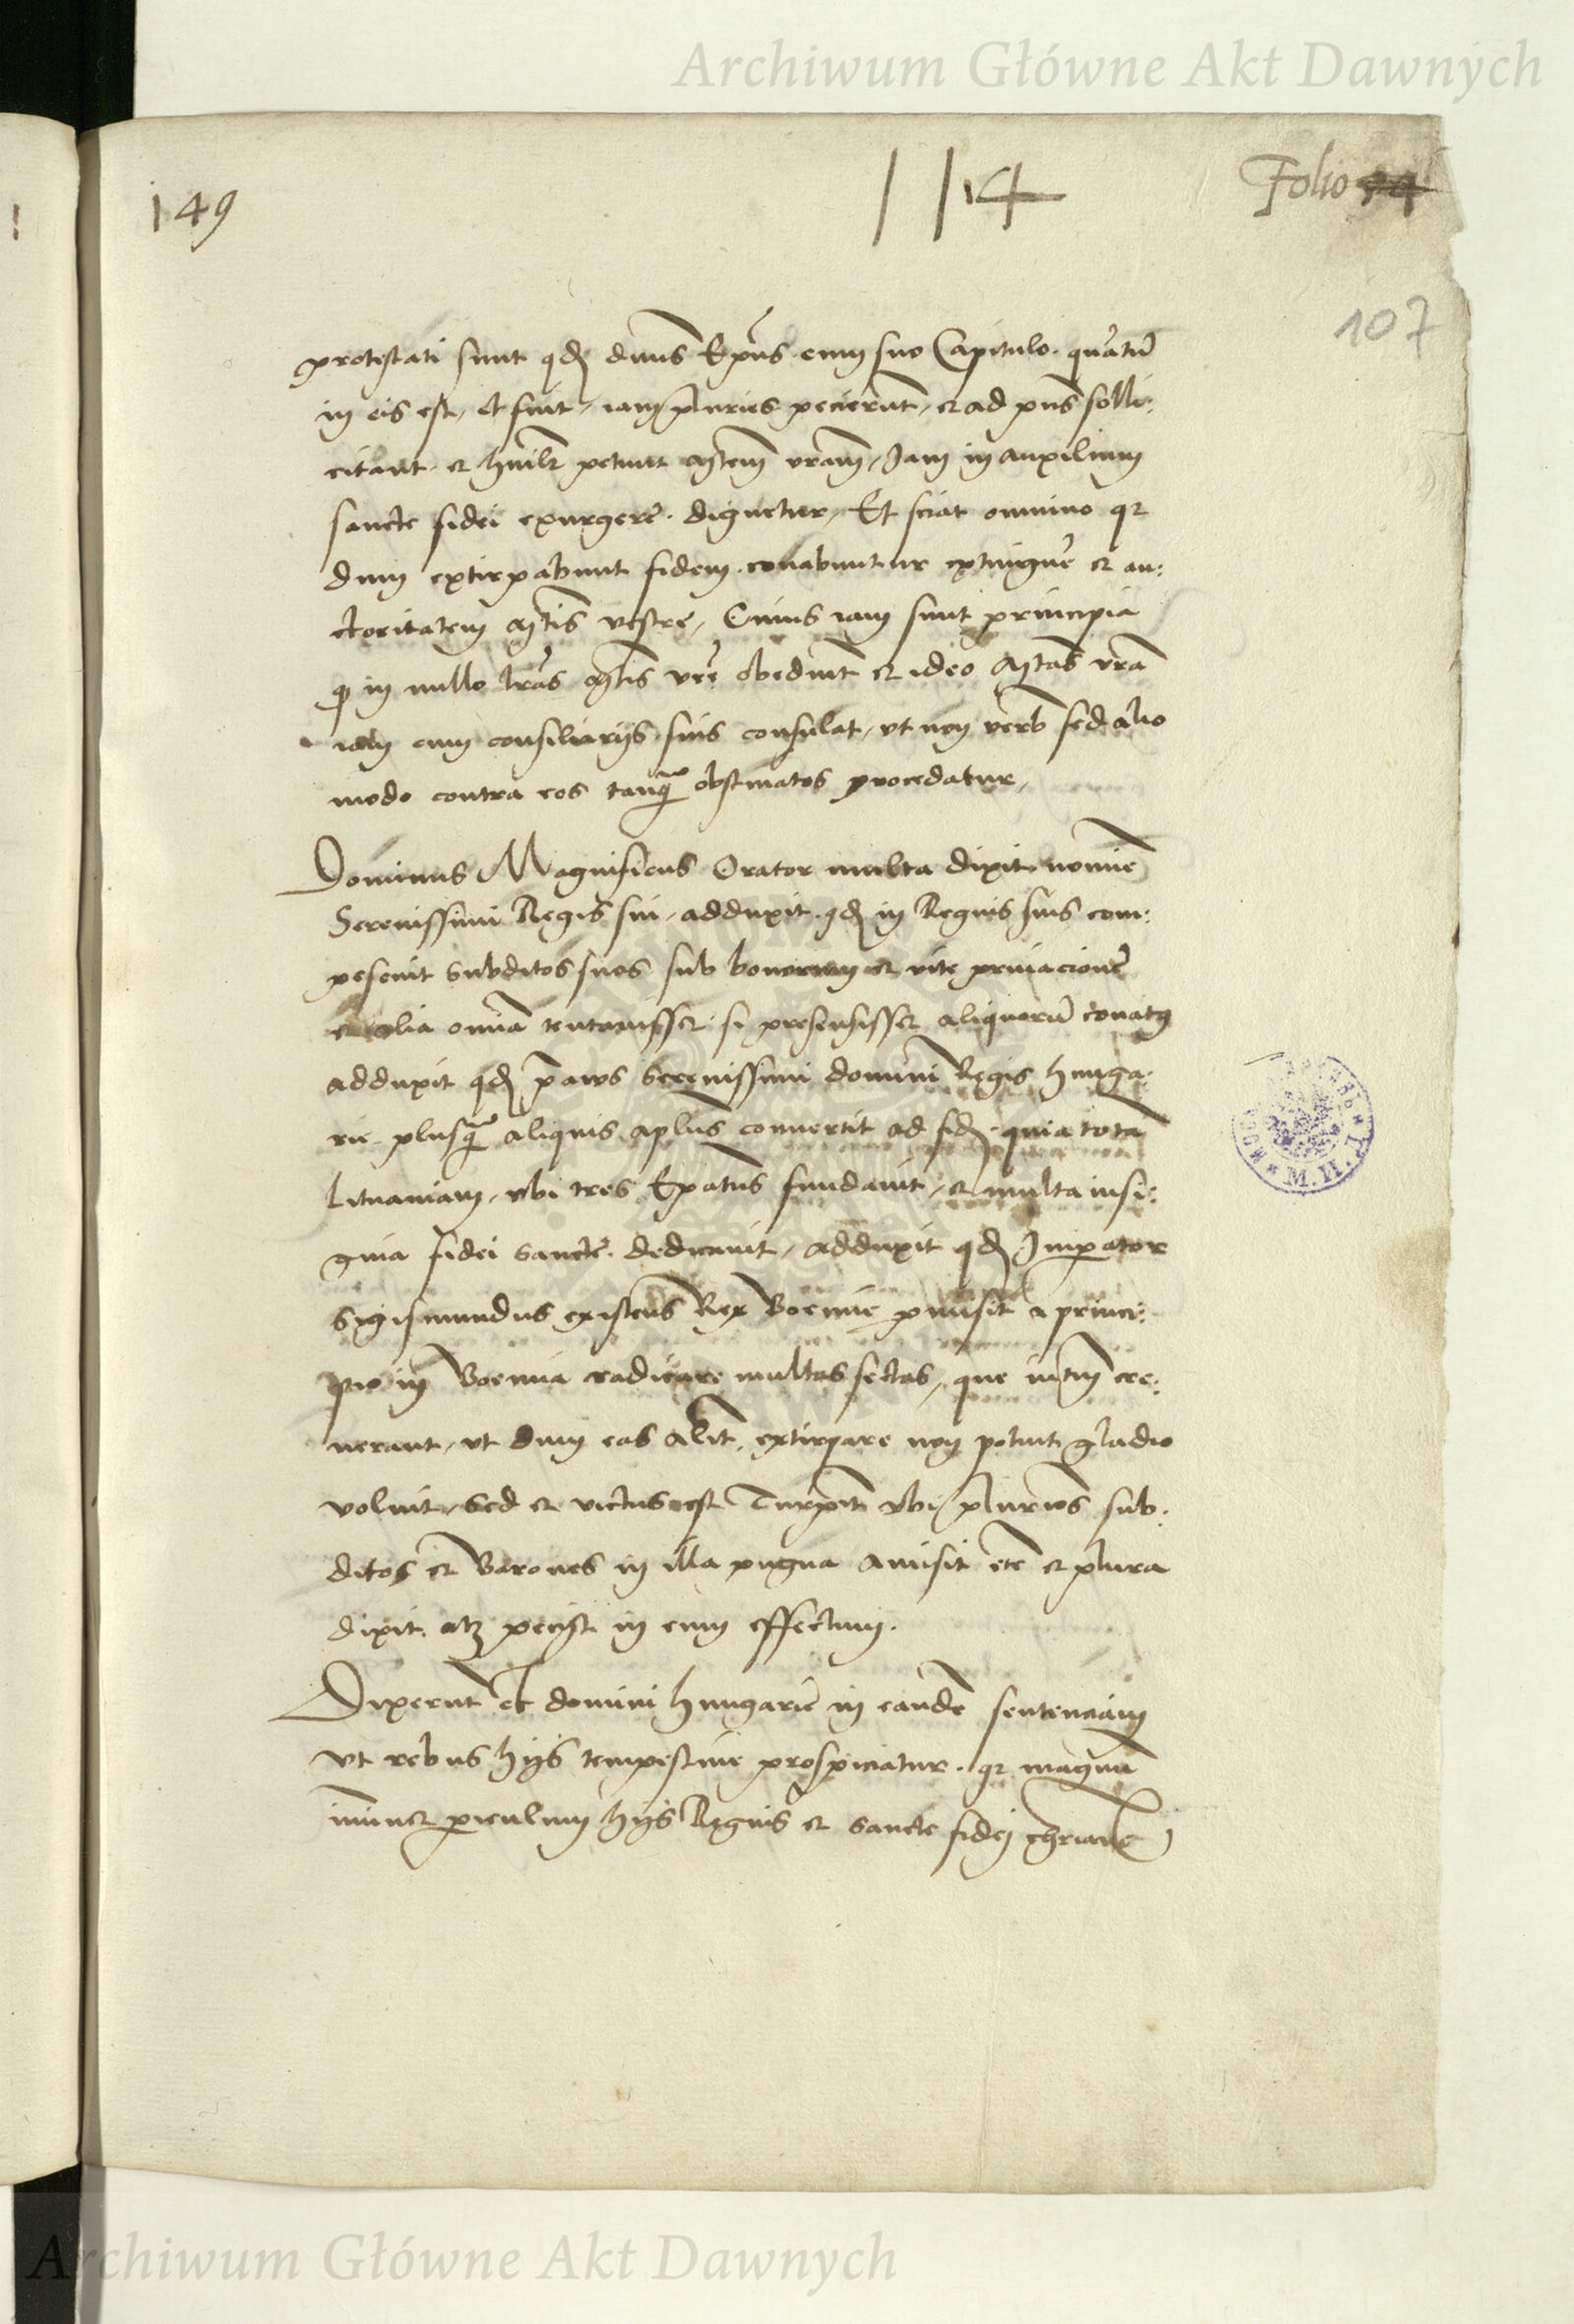 Archiwum Główne Akt Dawnych
149
114
Folio
107
protestati sunt qđ dnūs Epūs cum suo Capitulo quātū
in eis est, et fuit, iam pluries pecierūt, et ad pn̄s solli:
citant et humilr̄ petunt Mt̄em vrām, Jam in auxilium
sancte fidei exurgere dignetur, Et sciat omnino qz
dum extirpabunt fidem conabuntur extinguē et au:
ctoritatem Mt̄is vestre, Cuius iam sunt principia
qz in nullo lrās Mt̄is vrē obediūt et ideo Mt̄as vrā
iam cum consiliarijs suis consulat, vt non verb̄ sed alio
modo contra eos tanqȝ obstinatos procedatur,
Dominus Magnificus Orator multa dixit nomine
Serenissimi Regis sui, adduxit qđ in Regnis suis com:
pescuit subditos suos sub bonorum et vite priuacione
et alia omīa tentauisset si presensisset aliquorū conatꝰ
adduxit qđ p̄aws Serenissimi domini Regis hunga:
rie plusqȝ aliquis aplūs conuertit ad fidē quia totā
Lituaniam, vbi tres Ep̄atus fundauit, et multa insi:
gnia fidei sancte dedicauit, adduxit qđ Imperator
Sigismundus existens Rex Boemie pmisit a princi:
pio in Boemia radicare multas sectas, que intm̄ cre:
uerant, vt dum eas alit̄ extirpare non potuit gladio
voluit, Sed et victus est Turpit̄ vbi plurimos sub:
ditos et Barones in illa pugna amisit etc̄ et plura
dixit atqȝ in eum effectum.
Dixerūt et domini hungarie in eandē sentenciam
vt rebus hijs tempestiue prospiciatur qz magnū
iminet piculum hijs Regnis et sancte fidei chriane
Archiwum Główne Akt Dawnych